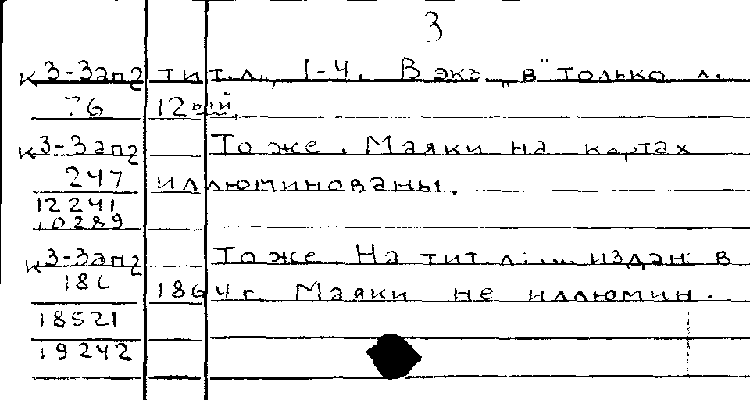 3
К3-Зап2 тит.л., 1-4. В экз. „в" только л.
76 12ый.
К3-Зап2 То же. Маяки на картах
247 иллюминованы.
12241
10289
К3-Зап2 То же На тит л: издан: в
18521
1864 г. Маяки не иллюмин.
19242